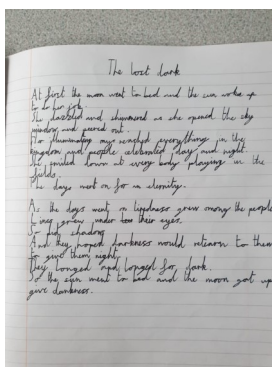 The lost dark
At first the moon went to bed and the sun woke up
to do her job.
She dazzled and shimmered as she opened the sky
window and peered out.
Her illuminating rays reached everything in the
kingdom and people celebrated day and night.
She smiled down at every body playing in the
fields.
The days went on for an eternity.
As the days went on tiredness grew among the people
Lines grew under their eyes.
So did shadows
And they hoped darkness would return to them
to give them night
They longed and longed for dark.
So the sun went to bed and the moon got up
give darkness.